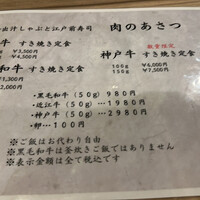 出汁しゃぶと江戸前寿司 肉のあさつ
牛 すき焼き定食
数量限定
神戸牛 すき焼き定食
100g ¥6,000円
150g ¥7,500円
和牛 すき焼き定食
・黒毛和牛（50g）…980円
・近江牛（50g）…1980円
・神戸牛（50g）…2980円
・卵…100円
※ご飯はお代わり自由
※黒毛和牛は釜炊きご飯ではありません
※表示金額は全て税込です